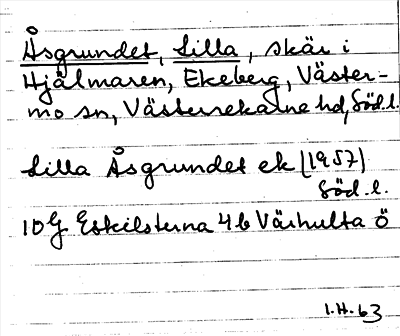 Åsgrundet, Lilla, skär i
Hjälmaren, Ekeberg, Väster-
mo sn, Västerrekarne hd, Söd.l.
Lilla Åsgrundet ek (1957)
Söd.l.
10G Eskilstuna 4b Värhulta ö
1.H.63